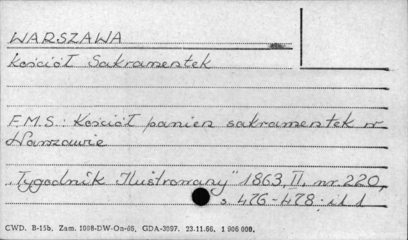 WARSZAWA
Kościół Sakramentek
F.M.S.: Kościół panien sakramentek w
Warszawie
„Tygodnik Ilustrowany" 1863, II, nr 220,
s. 476-478; il. 1
CWD. B-15b. Zam. 1098-DW-On-66. GDA-3097. 23.11.66. 1 906 000.